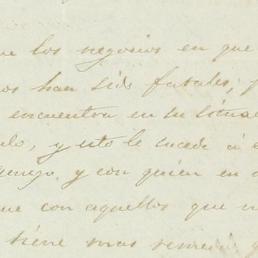 ue los negocios en que
os han sido fatales; y
encuentra en su situa
lo, y esto le sucede á
y con quien en
que con aquellos que n
tiene mas remedio